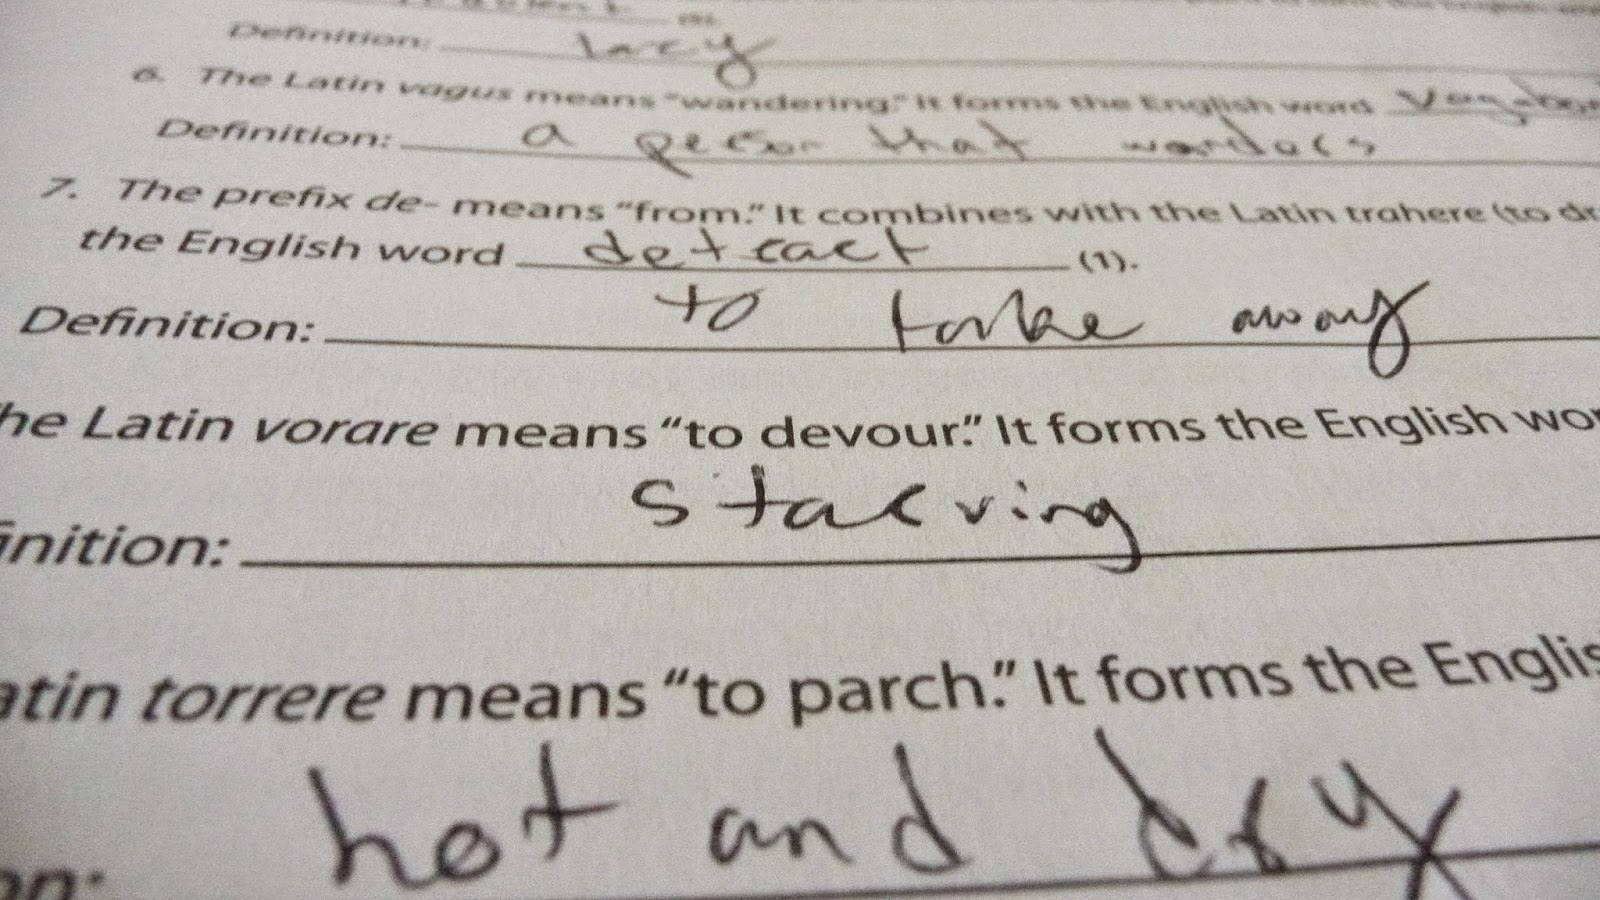 Definition: lazy
6. The Latin vagus means "wandering." It forms the English word
Definition: a person that wanders
7. The prefix de- means "from." It combines with the Latin trahere (to dr
the English word detract (1).
Definition: to take away
he Latin vorare means "to devour." It forms the English wor
inition: starving
atin torrere means "to parch." It forms the Englis
on: hot and dry